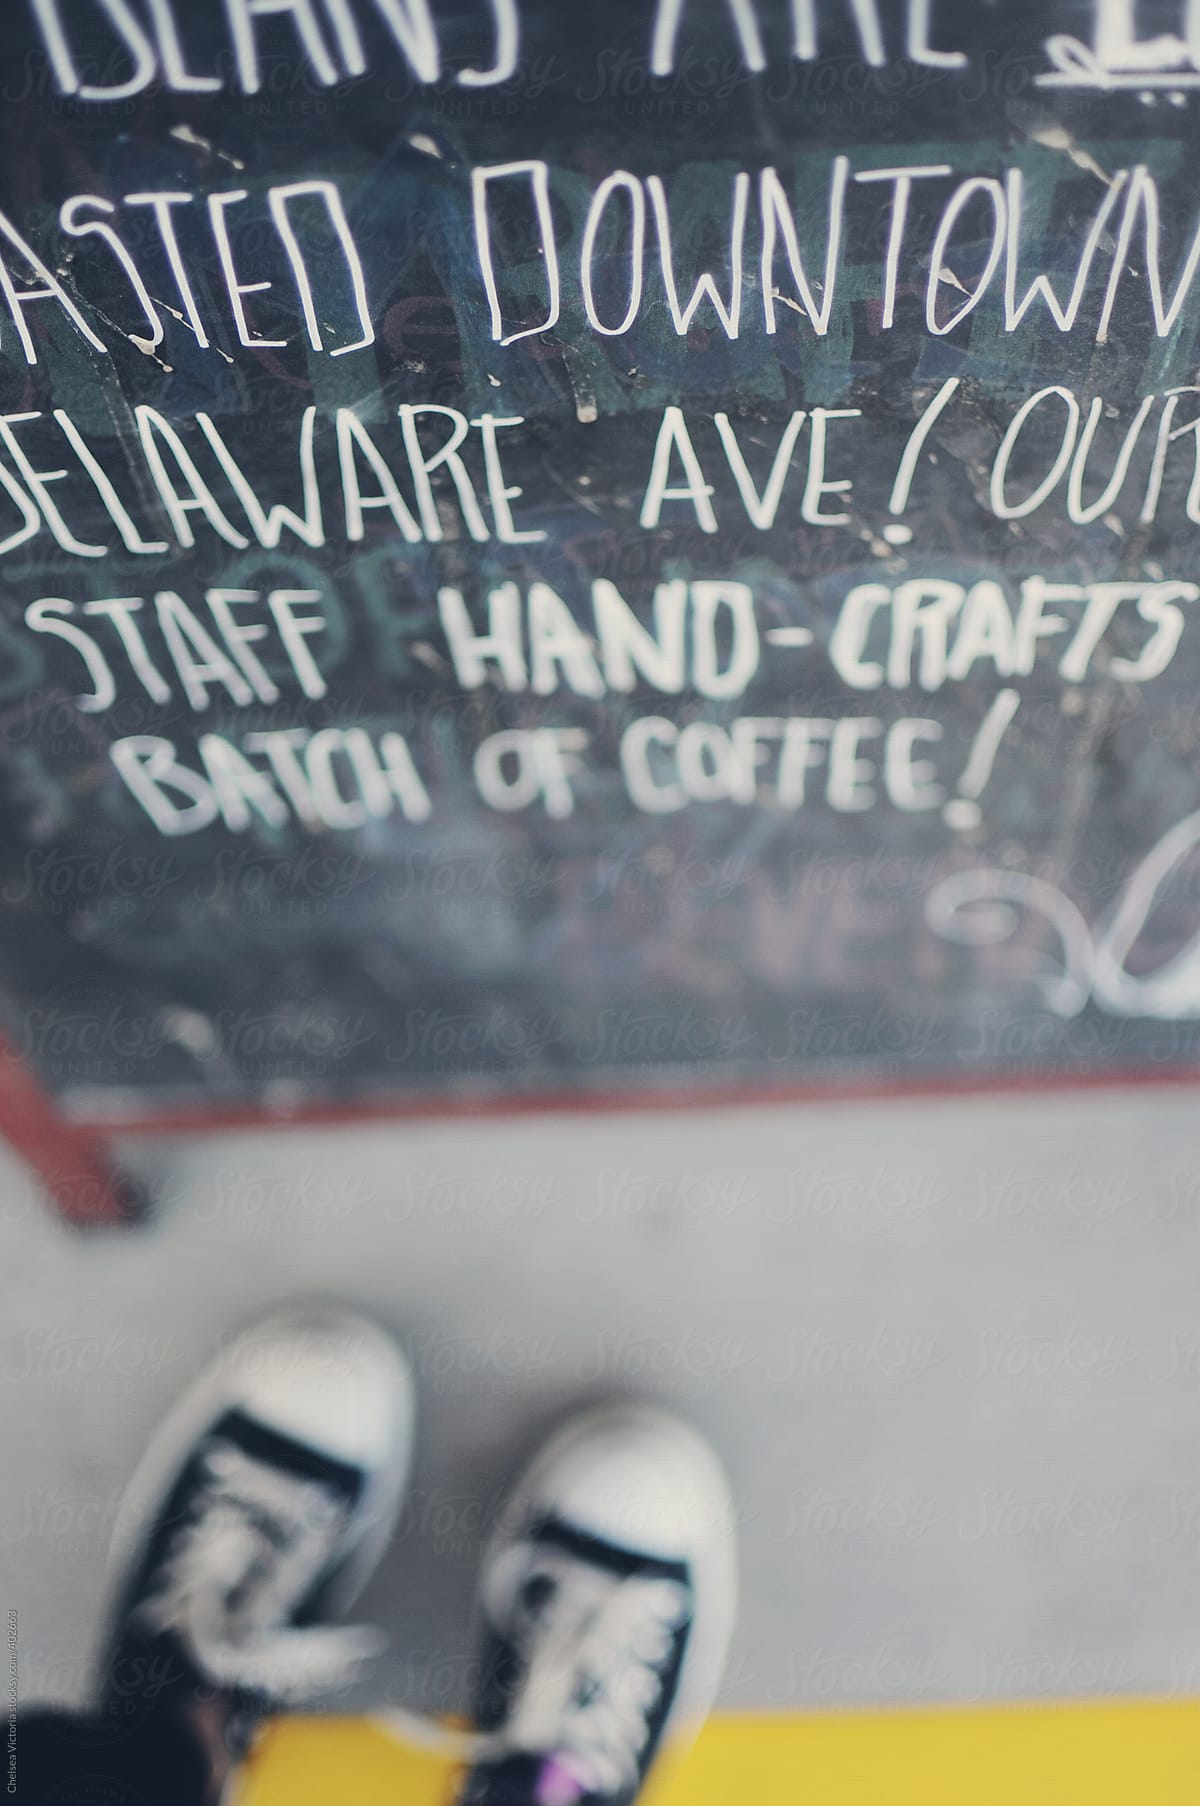 BEANS ARE
ASTED DOWNTOWN
DELAWARE AVE! OUR
STAFF HAND-CRAFTS
BATCH OF COFFEE!
Stocksy UNITED
Chelsea Victoria stocksy.com/402663